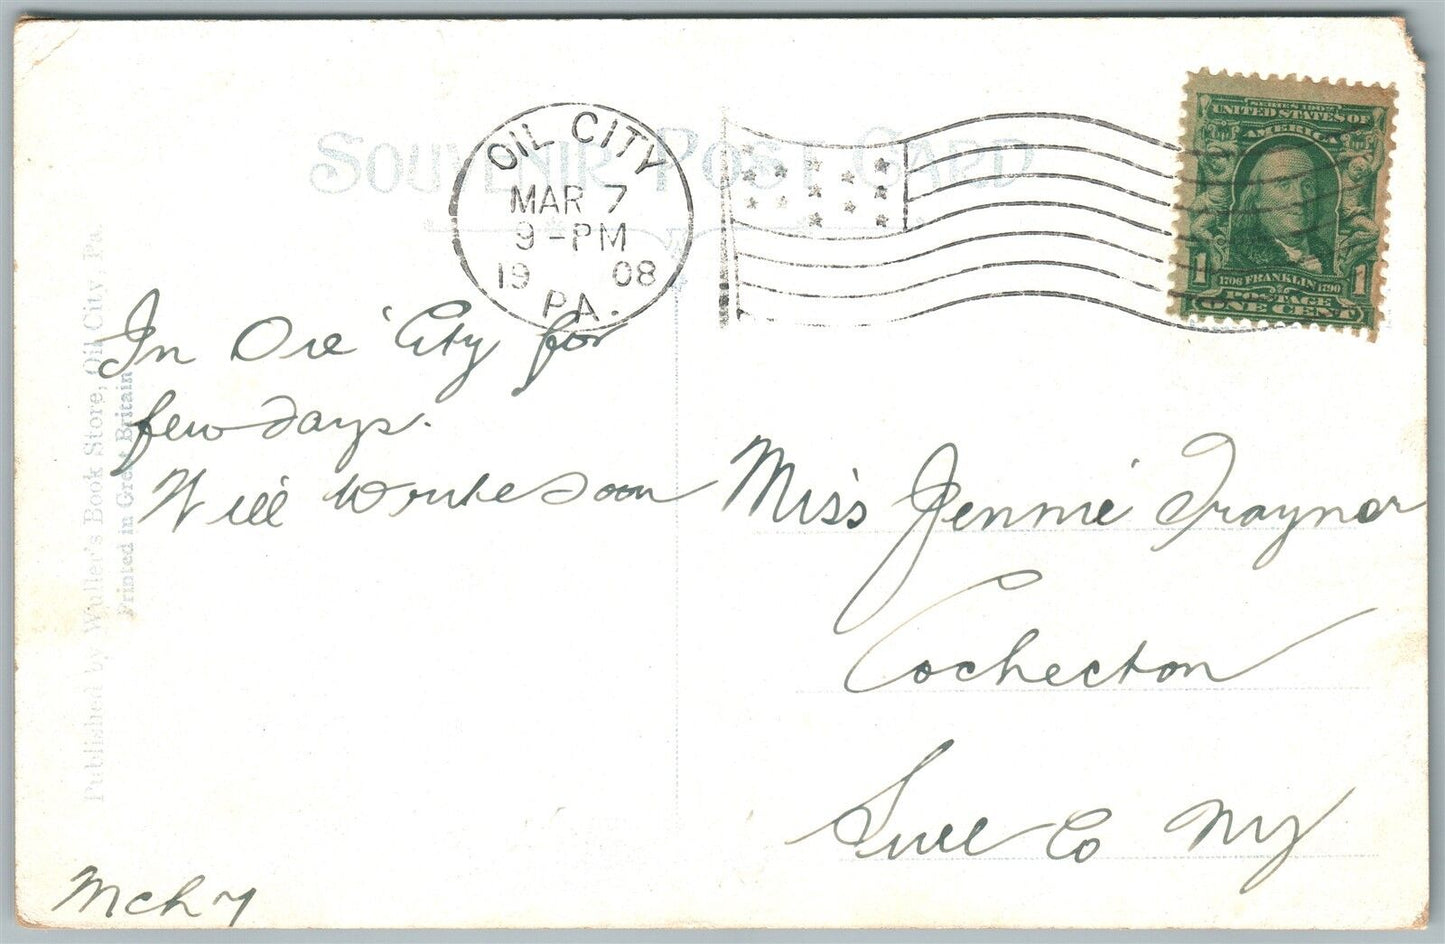 SOUVENIR POST CARD
OIL CITY
MAR 7
9-PM
19 08
PA.
SERIES 1902
UNITED STATES OF
AMERICA
1 1
1706 FRANKLIN 1790
POSTAGE
ONE CENT
In Oil City for
few days.
Will write soon
Miss Jennie Traynor
Cochecton
Sull Co NY
Mch 7
Published by Wuller's Book Store, Oil City, Pa.
Printed in Great Britain